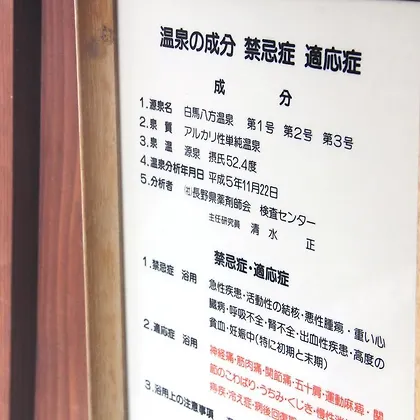 温泉の成分 禁忌症 適応症
成 分
1.源泉名 白馬八方温泉 第1号 第2号 第3号
2.泉 質 アルカリ性単純温泉
3.泉 温 源泉 摂氏52.4度
4.温泉分析年月日 平成5年11月22日
5.分析者 ㈳長野県薬剤師会 検査センター
主任研究員 清 水 正
禁忌症・適応症
1.禁忌症 浴用 急性疾患・活動性の結核・悪性腫瘍・重い心
臓病・呼吸不全・腎不全・出血性疾患・高度の
貧血・妊娠中(特に初期と末期)
2.適応症 浴用 神経痛・筋肉痛・関節痛・五十肩・運動麻痺・関
節のこわばり・うちみ・くじき・慢性消
痔疾・冷え症・病後回復期
3.浴用上の注意事項